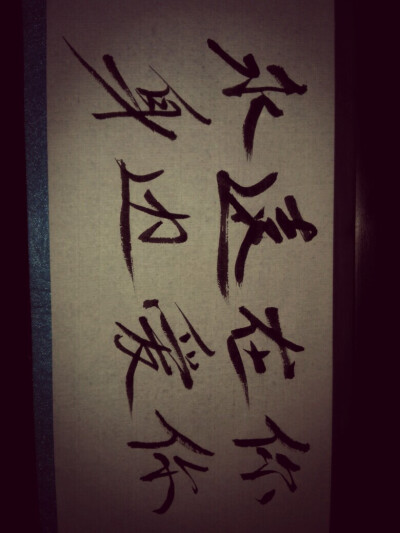 永远在你
身边爱你